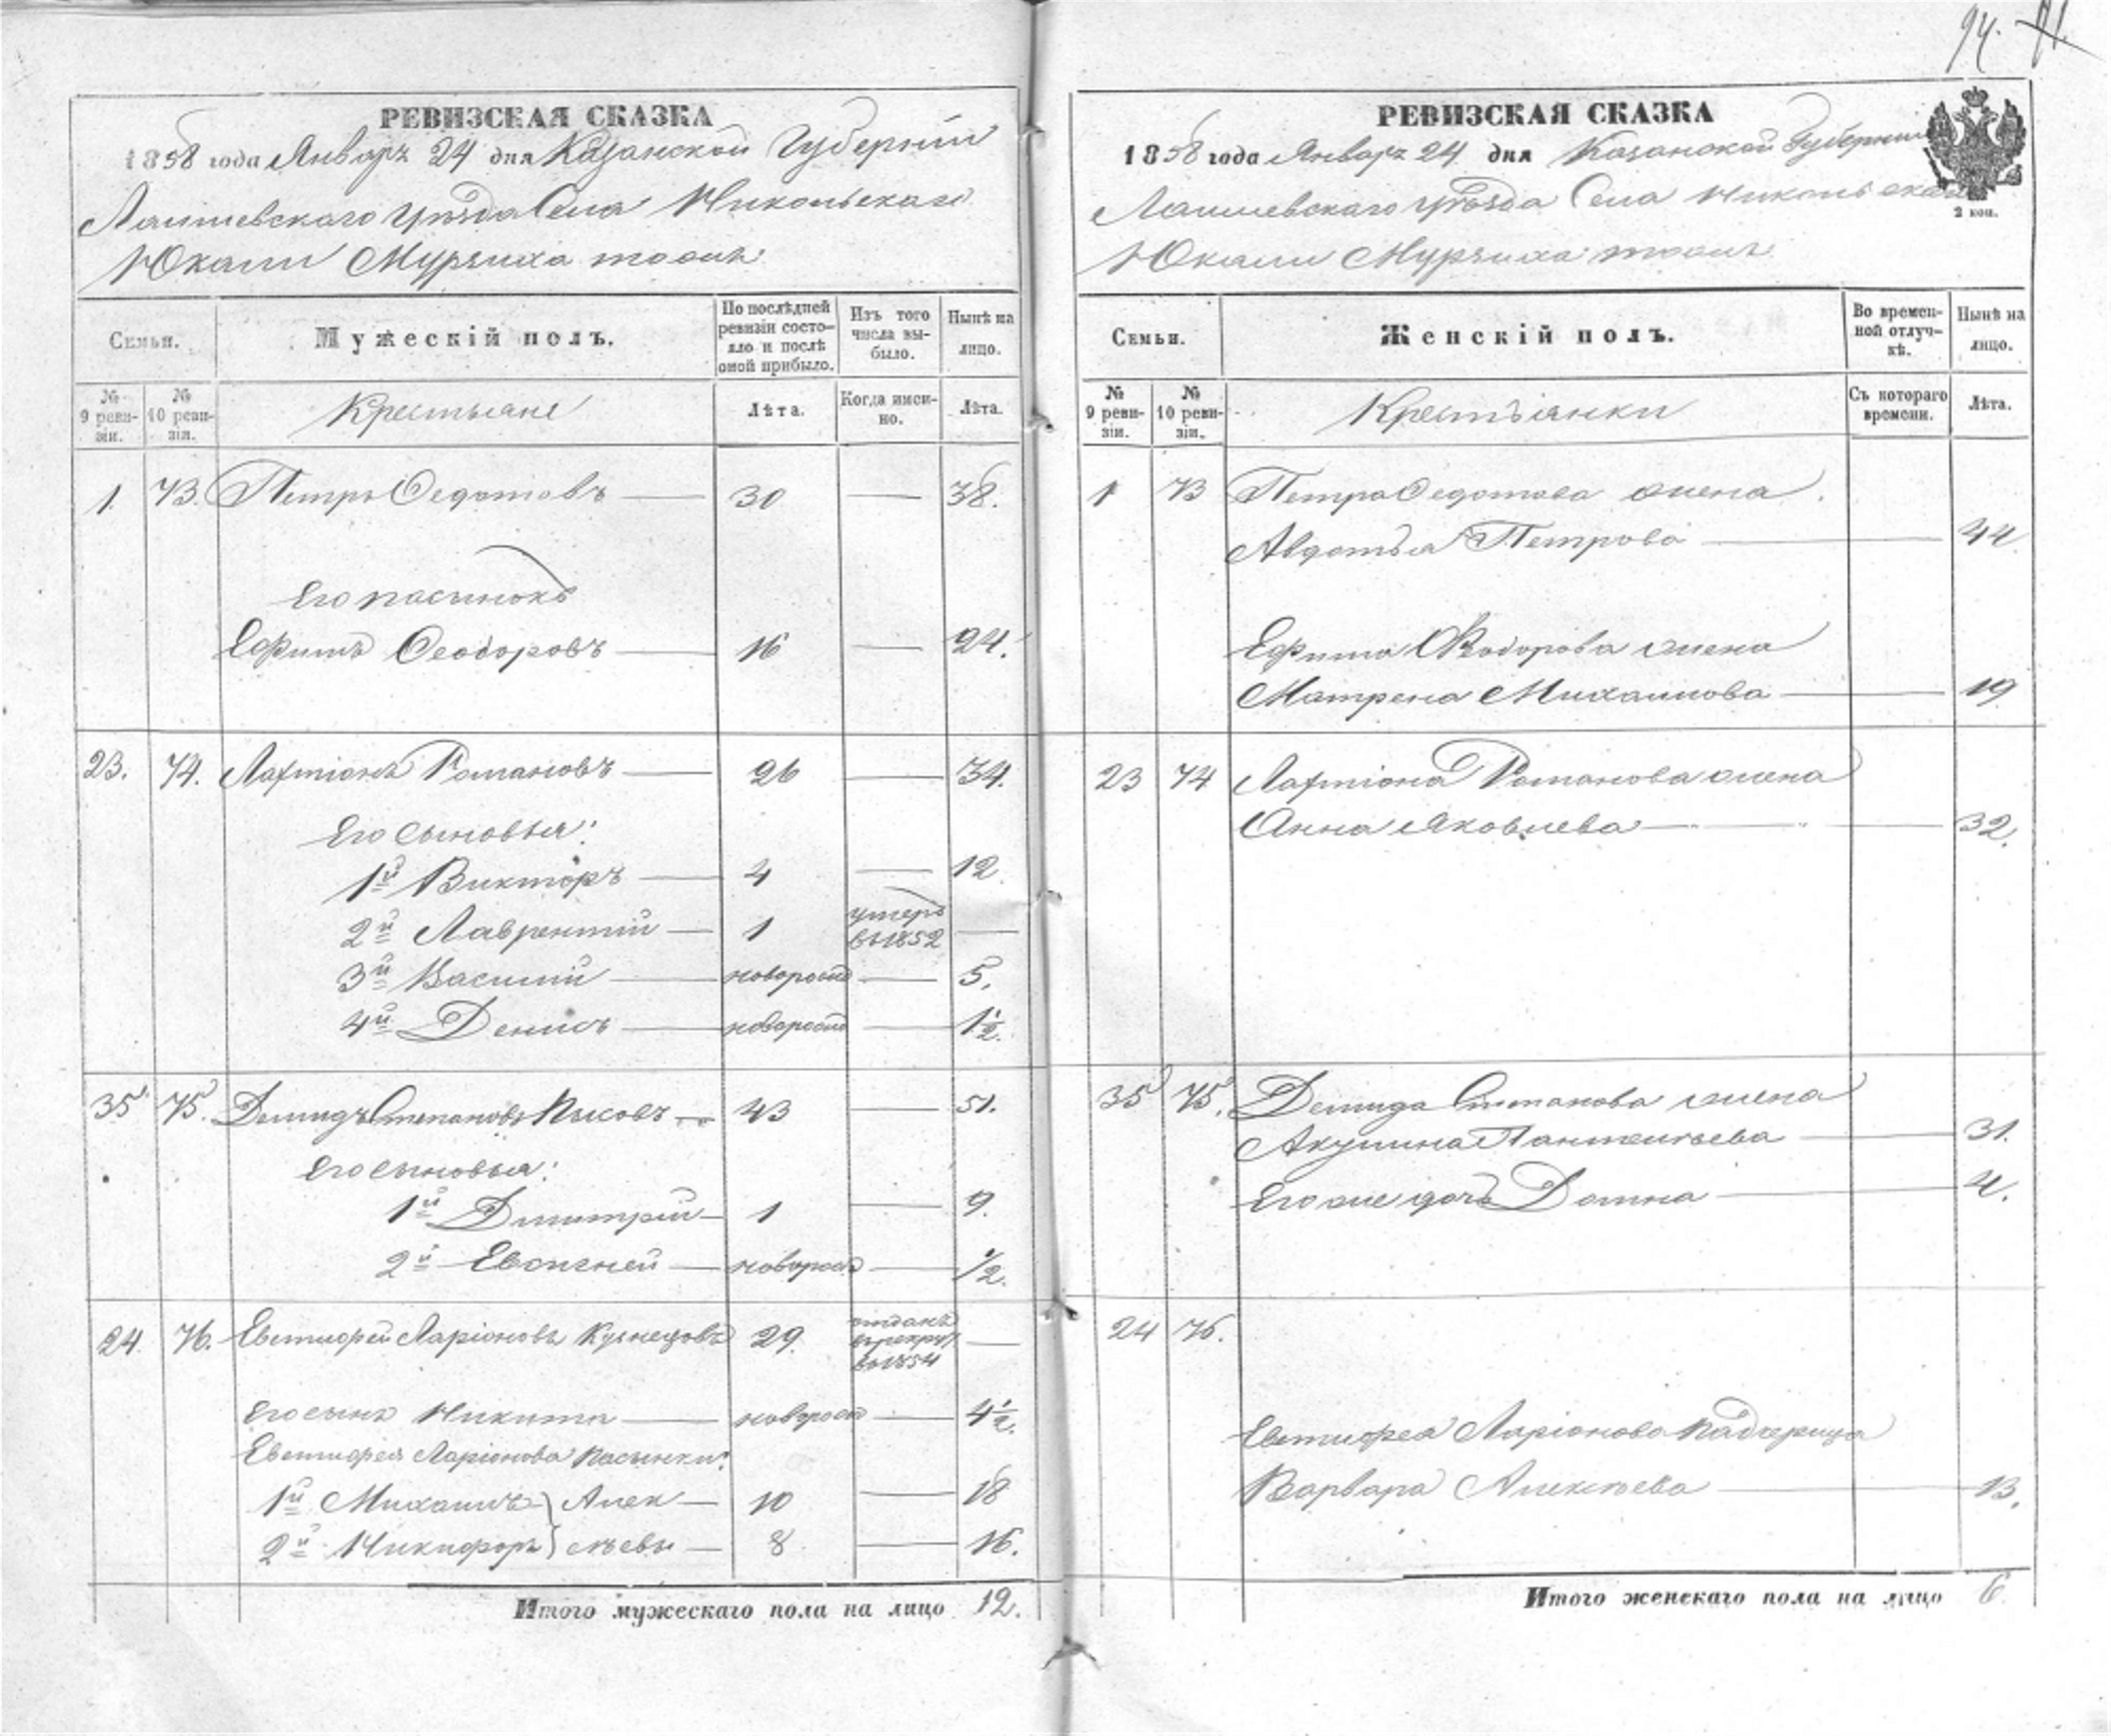 94.
РЕВИЗСКАЯ СКАЗКА
1858 года Январь 24 дня Казанской Губерніи
Лаишевскаго уѣзда Села Никольскаго
Мурзиха тожъ
Семьи.
Мужескій полъ.
По послѣдней ревизіи состояло и послѣ оной прибыло.
Изъ того числа выбыло.
Нынѣ на лицо.
№ 9 ревизіи.
№ 10 ревизіи.
Крестьяне
Лѣта.
Когда именно.
Лѣта.
1. 73. Петръ Федотовъ — 30 — 38.
Его пасынокъ
Ефимъ Феодоровъ — 16 — 24.
23. 74. Романовъ — 26 — 34.
Его сыновья:
1й Викторъ — 4 — 12
2й Лаврентій — 1 умеръ въ 1852 —
3й Василій — новорожд — 5.
4й Денисъ — новорожд — 1½.
35. 75. Демидъ Степановъ — 43 — 51.
Его сыновья:
1й Димитрій — 1 — 9.
2й Евсигней — новорожд — ½.
24. 76. Евстифей Ларіоновъ Кузнецовъ 29. отданъ въ рекруты въ 1854 —
Его сынъ Никита — новорожд — 4½.
Евстифея Ларіонова пасынки:
1й Михаилъ } Алек — 10 — 18
2й Никифоръ } сѣевы — 8 — 16.
Итого мужескаго пола на лицо 12.
РЕВИЗСКАЯ СКАЗКА
1858 года Январь 24 дня Казанской Губерніи
2 коп.
Лаишевскаго уѣзда Села Никольскаго
Мурзиха тожъ
Семьи.
Женскій полъ.
Во временной отлучкѣ.
Нынѣ на лицо.
№ 9 ревизіи.
№ 10 ревизіи.
Крестьянки
Съ котораго времени.
Лѣта.
1 73 Петра Федотова жена
Авдотья Петрова — 44
Ефима Феодорова жена
Матрена Михаилова — 19
23 74 Романова жена
Анна Яковлева — 32.
35 75. Демида Степанова жена
Акулина Пантелеьева — 31.
Его же дочь Домна — 4.
24 76.
Евстифея Ларіонова падчерица
Варвара Алексѣева — 13.
Итого женскаго пола на лицо 6